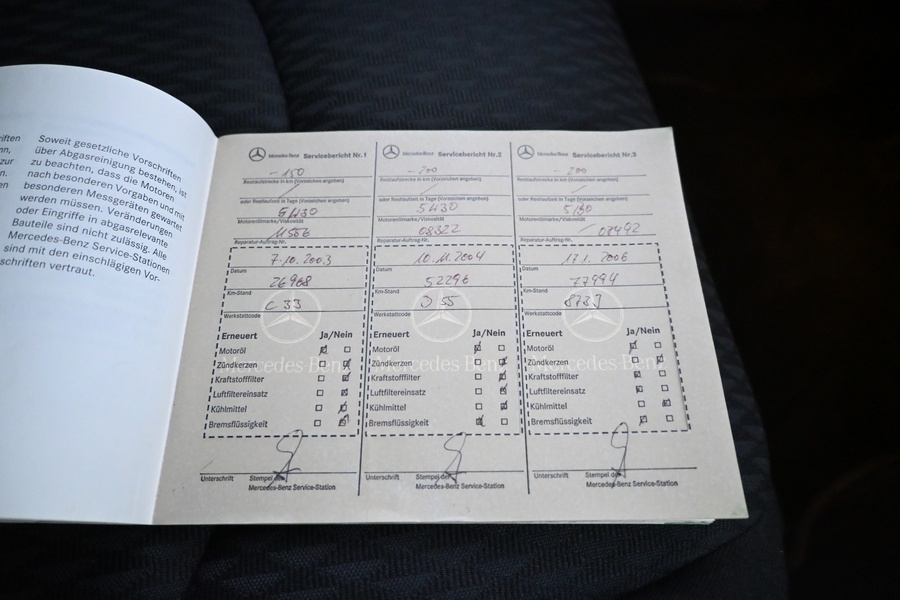 Soweit gesetzliche Vorschriften
über Abgasreinigung bestehen, ist
zu beachten, dass die Motoren
nach besonderen Vorgaben und mit
besonderen Messgeräten gewartet
werden müssen. Veränderungen
oder Eingriffe in abgasrelevante
Bauteile sind nicht zulässig. Alle
Mercedes-Benz Service-Stationen
sind mit den einschlägigen Vor-
schriften vertraut.
Mercedes-Benz Servicebericht Nr. 1
- 150
Reststrecke in km (Vorzeichen angeben)
oder Restlaufzeit in Tage (Vorzeichen angeben)
5W30
Motorenölmarke/Viskosität
11506
Reparatur-Auftrag-Nr.
7.10.2003
Datum
26968
Km-Stand
C 33
Werkstattcode
Erneuert Ja/Nein
Motoröl
Zündkerzen
Kraftstofffilter
Luftfiltereinsatz
Kühlmittel
Bremsflüssigkeit
Unterschrift Stempel der
Mercedes-Benz Service-Station
Mercedes-Benz Servicebericht Nr. 2
- 200
Reststrecke in km (Vorzeichen angeben)
oder Restlaufzeit in Tage (Vorzeichen angeben)
5W30
Motorenölmarke/Viskosität
08322
Reparatur-Auftrag-Nr.
10.11.2004
Datum
52296
Km-Stand
D 55
Werkstattcode
Erneuert Ja/Nein
Motoröl
Zündkerzen
Kraftstofffilter
Luftfiltereinsatz
Kühlmittel
Bremsflüssigkeit
Unterschrift Stempel der
Mercedes-Benz Service-Station
Mercedes-Benz Servicebericht Nr. 3
- 200
Reststrecke in km (Vorzeichen angeben)
oder Restlaufzeit in Tage (Vorzeichen angeben)
Motorenölmarke/Viskosität
07492
Reparatur-Auftrag-Nr.
17.1.2006
Datum
77994
Km-Stand
Werkstattcode
Erneuert Ja/Nein
Motoröl
Zündkerzen
Kraftstofffilter
Luftfiltereinsatz
Kühlmittel
Bremsflüssigkeit
Unterschrift Stempel der
Mercedes-Benz Service-Station